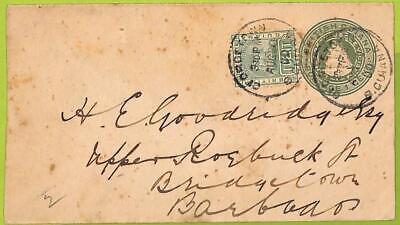 GEORGETOWN
BRITISH GUIANA
H. E. Goodridge Esq
Upper Roebuck St
Bridgetown
Barbados